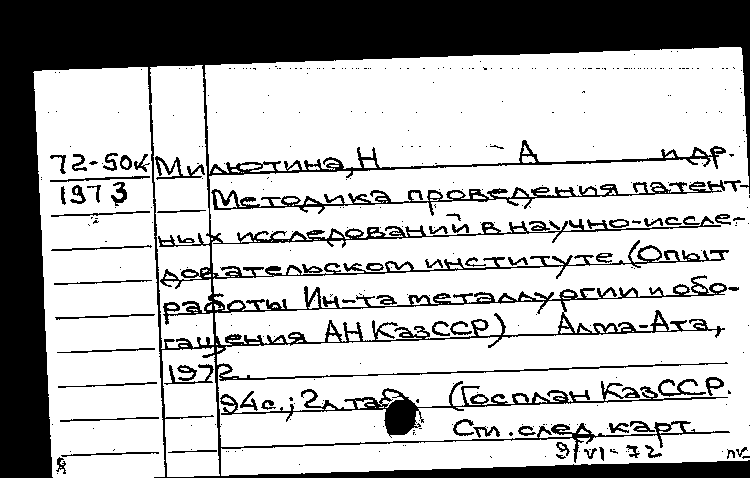 72-50к Милютина, Н А и др.
1973 Методика проведения патент-
ных исследований в научно-иссле-
довательском институте. (Опыт
работы Ин-та металлургии и обо-
гащения АН КазССР) Алма-Ата,
1972.
94с.; 2л. таб. (Госплан КазССР.
См. след. карт.
9/VI-72